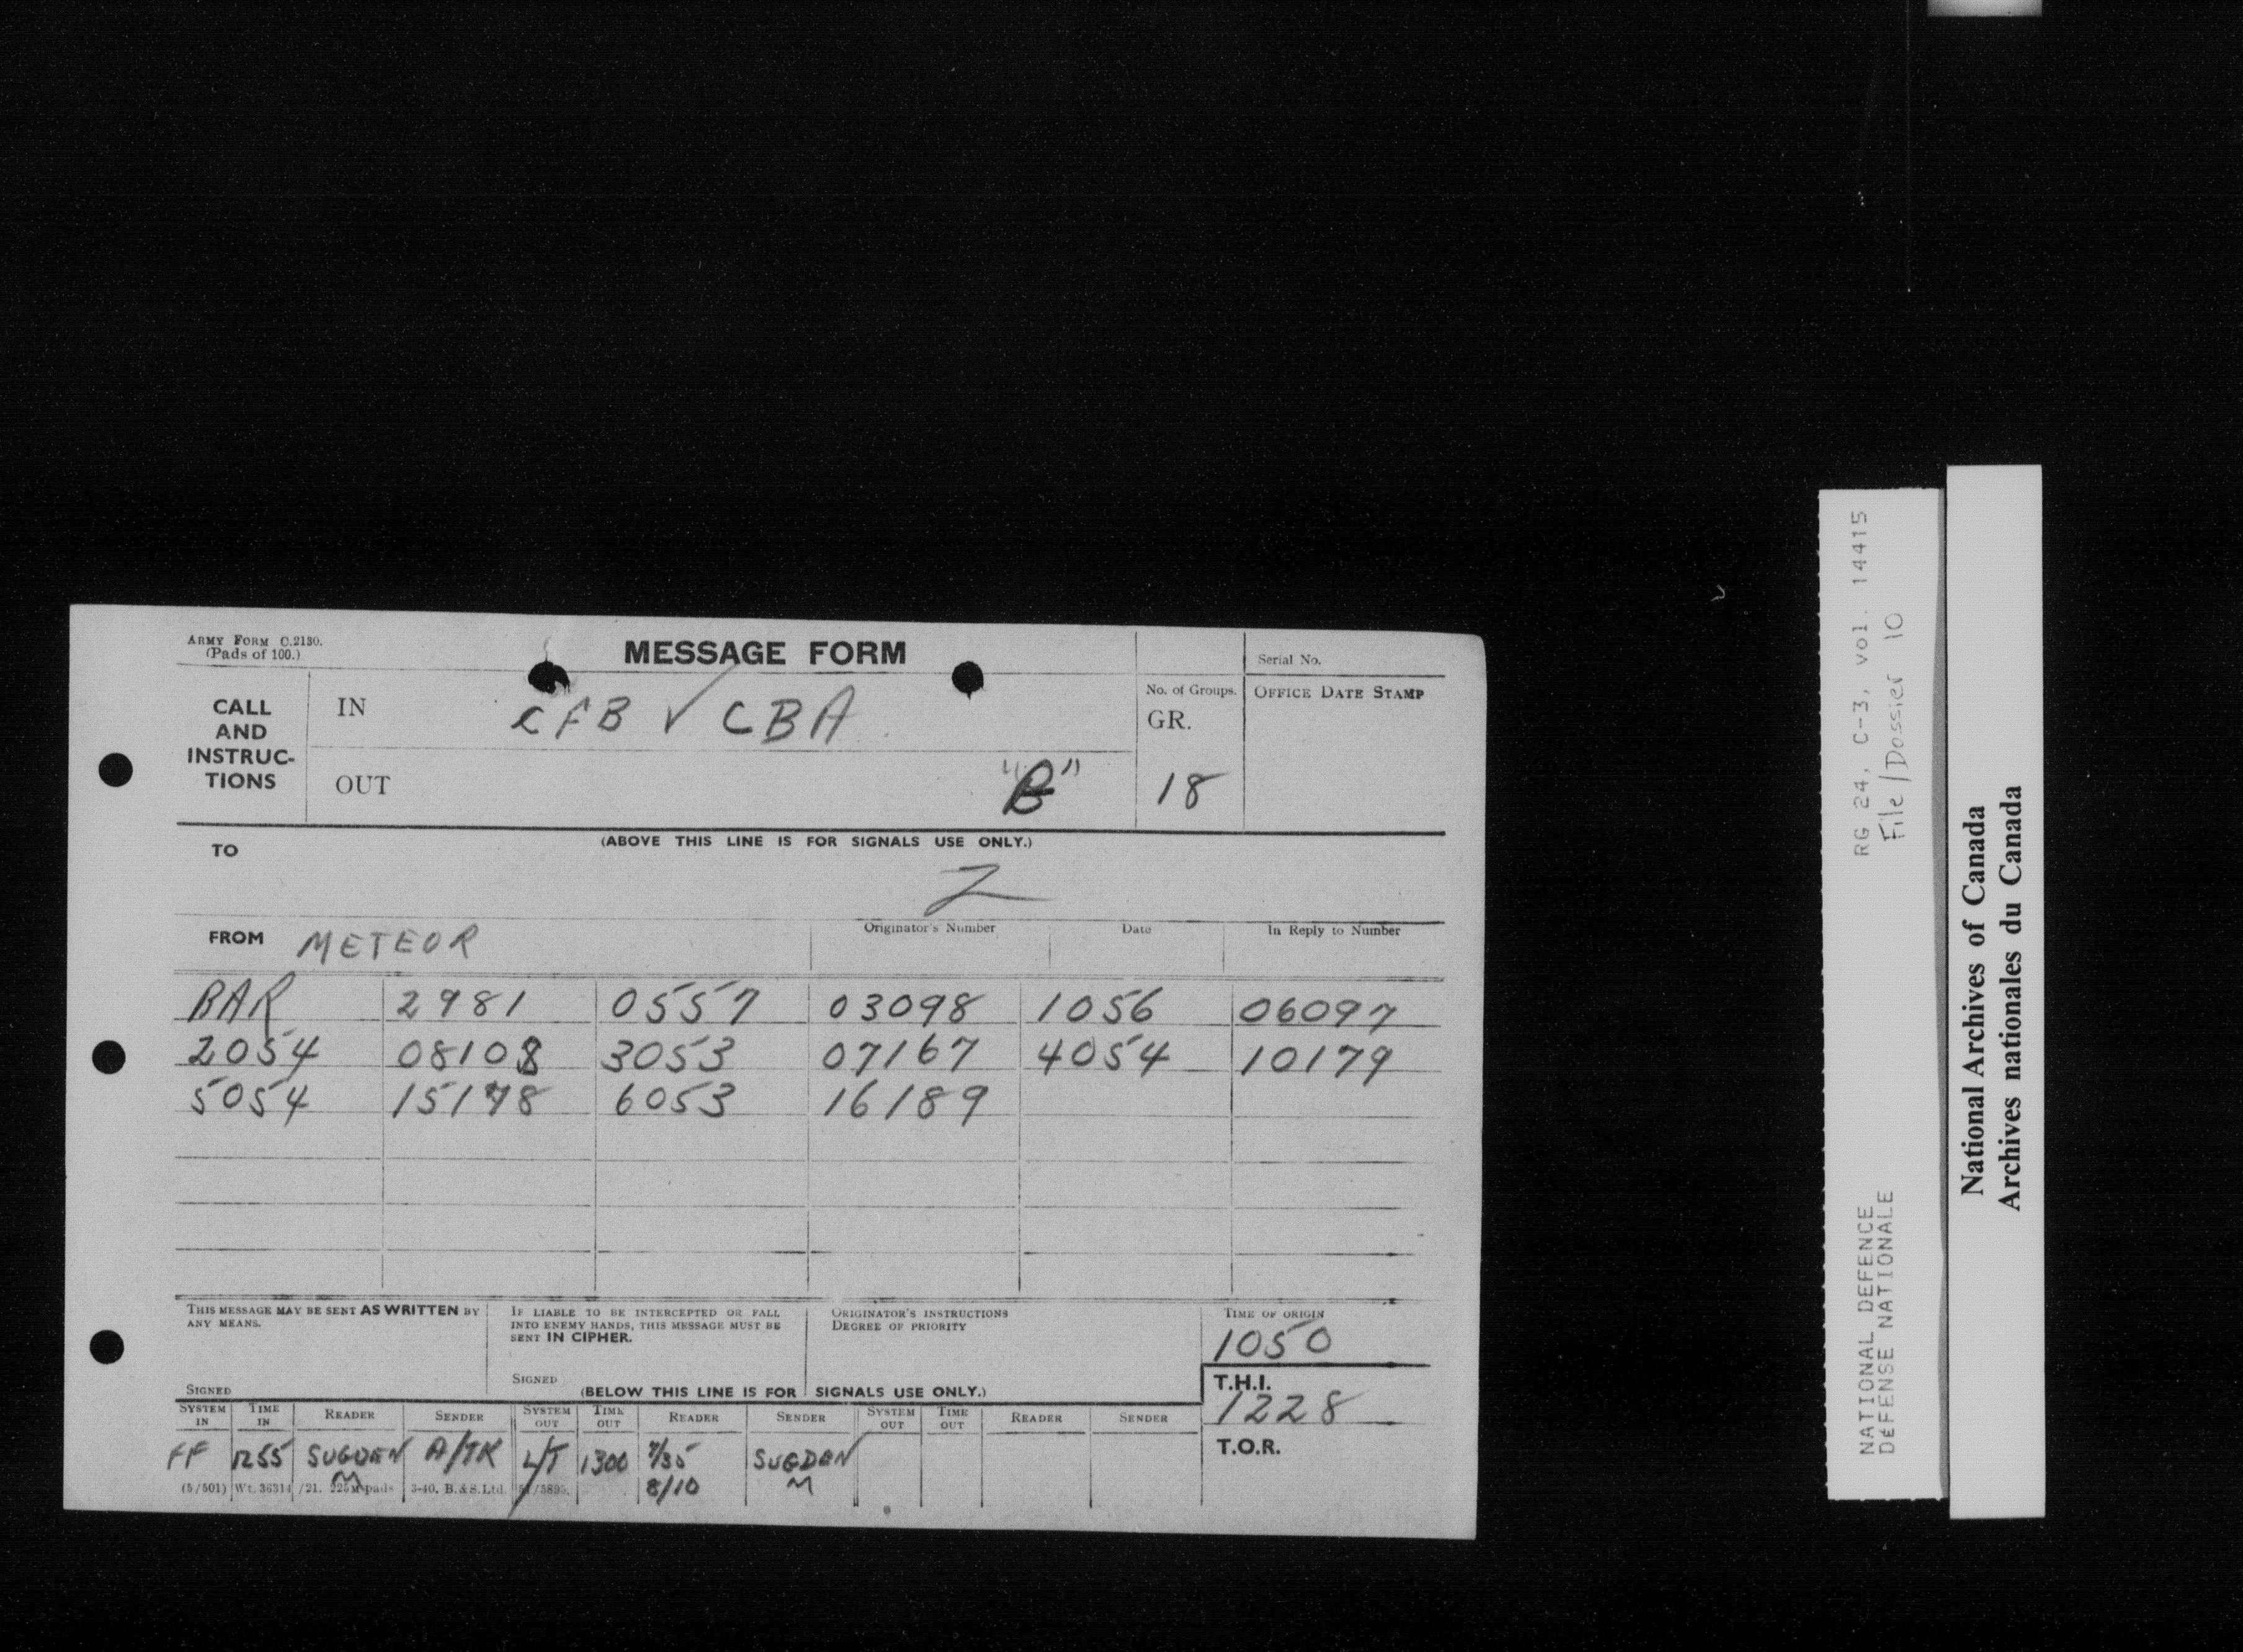 ARMY FORM C.2130.
(Pads of 100.)
MESSAGE FORM
Serial No.
CALL
AND
INSTRUC-
TIONS
IN
CFB V CBA
No. of Groups.
GR.
18
OFFICE DATE STAMP
OUT
"B"
(ABOVE THIS LINE IS FOR SIGNALS USE ONLY.)
TO
FROM METEOR
Originator's Number
Date
In Reply to Number
BAR 2981 0557 03098 1056 06097
2054 08108 3053 07167 4054 10179
5054 15178 6053 16189
THIS MESSAGE MAY BE SENT AS WRITTEN BY
ANY MEANS.
SIGNED
IF LIABLE TO BE INTERCEPTED OR FALL
INTO ENEMY HANDS, THIS MESSAGE MUST BE
SENT IN CIPHER.
SIGNED
ORIGINATOR'S INSTRUCTIONS
DEGREE OF PRIORITY
TIME OF ORIGIN
1050
(BELOW THIS LINE IS FOR SIGNALS USE ONLY.)
T.H.I.
1228
T.O.R.
SYSTEM IN TIME IN READER SENDER SYSTEM OUT TIME OUT READER SENDER SYSTEM OUT TIME OUT READER SENDER
FF 1255 SUGDEN A/TK L/T 1300 7/35 SUGDEN
M 8/10 M
(5/501) Wt. 36314 /21. 225M pads 3-40. B.&S.Ltd.
RG 24, C-3, vol. 14415
File/Dossier 10
NATIONAL DEFENCE
DÉFENSE NATIONALE
National Archives of Canada
Archives nationales du Canada